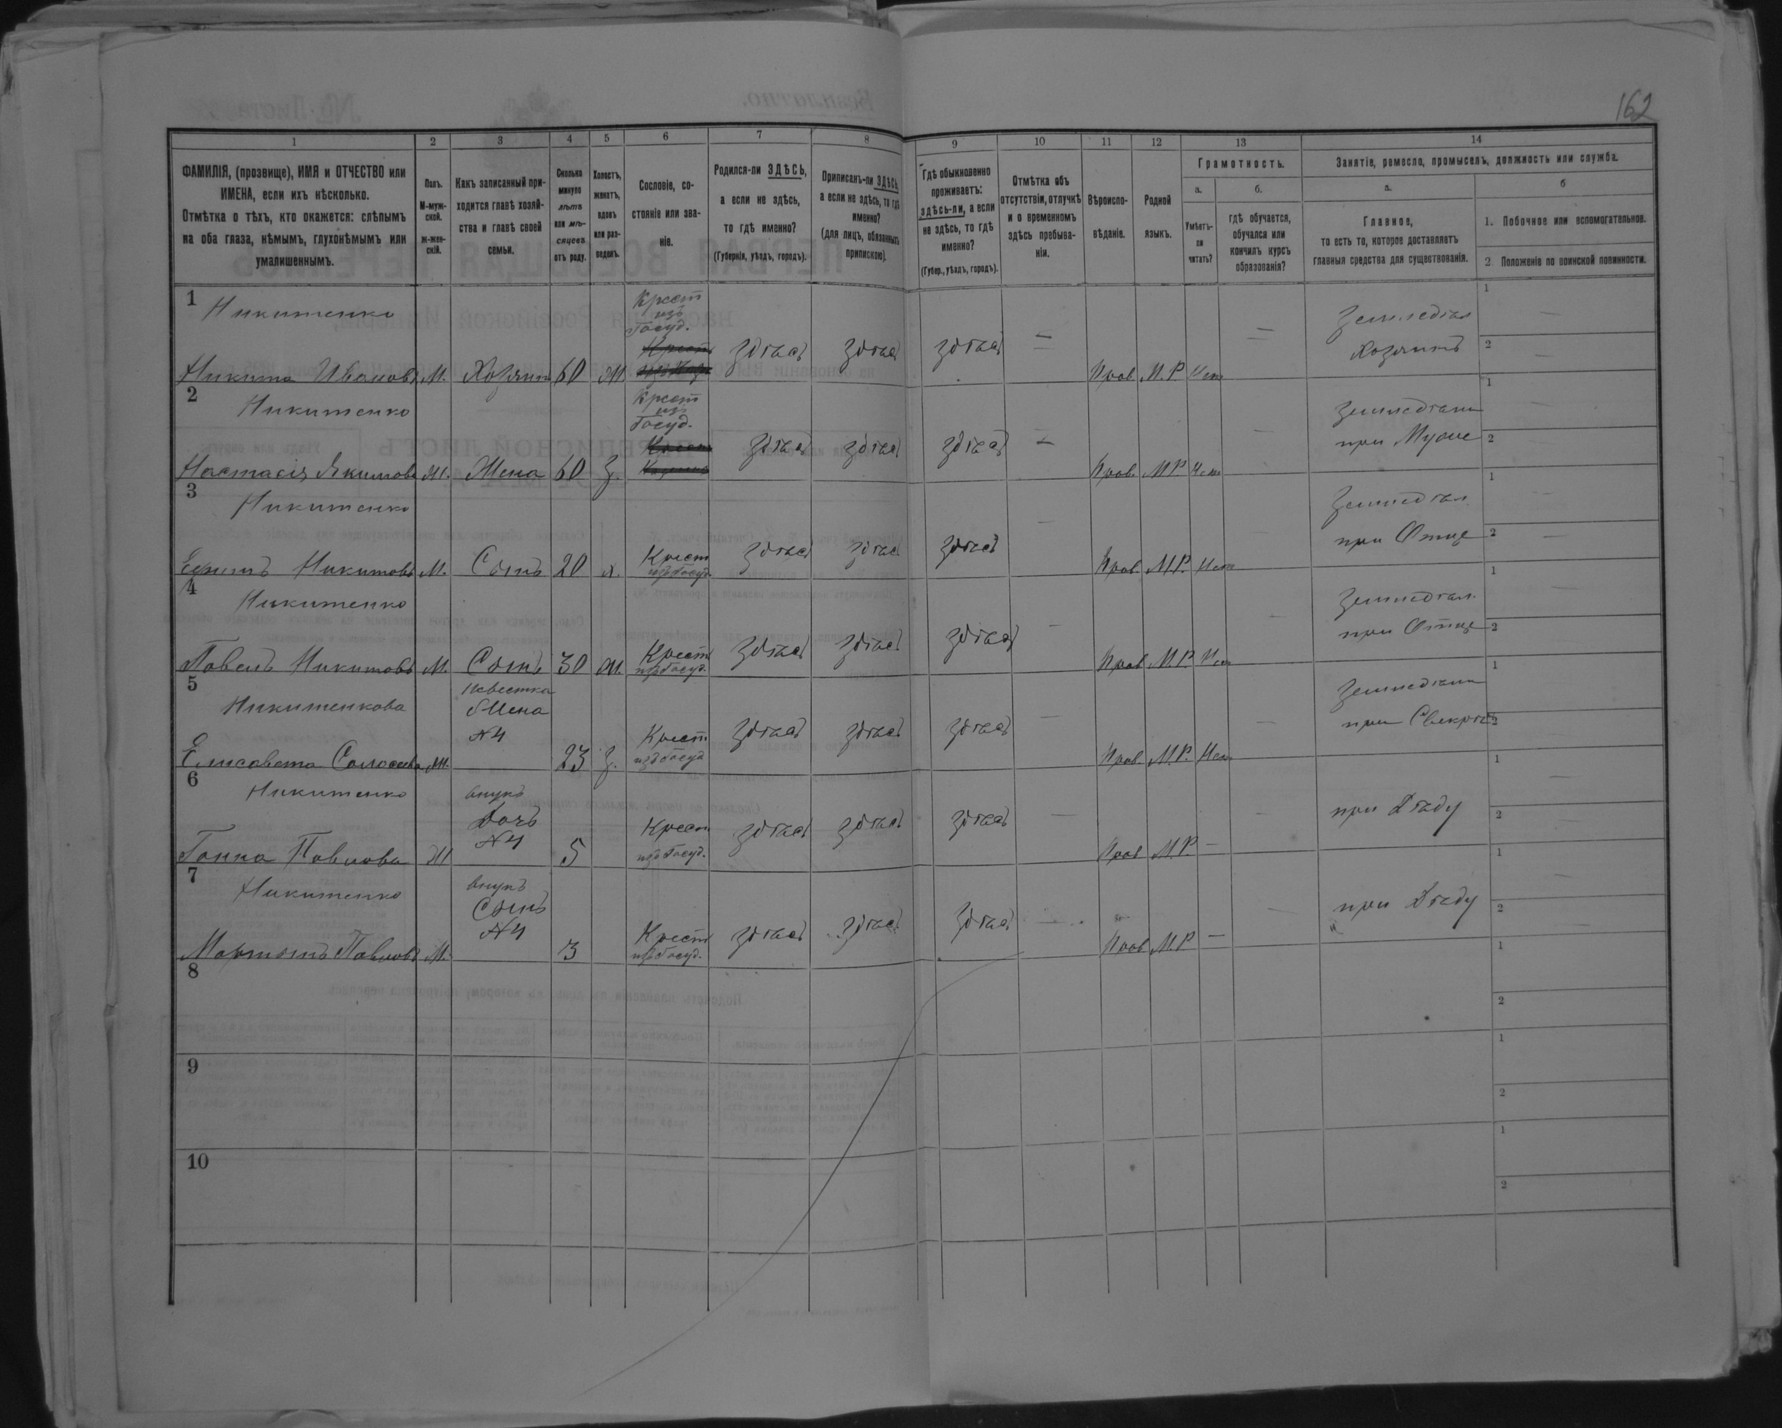 162
1 2 3 4 5 6 7 8 9 10 11 12 13 14
ФАМИЛІЯ, (прозвище), ИМЯ и ОТЧЕСТВО или
ИМЕНА, если ихъ нѣсколько.
Отмѣтка о тѣхъ, кто окажется: слѣпымъ
на оба глаза, нѣмымъ, глухонѣмымъ или
умалишеннымъ.
Полъ.
М-муж-
ской.
ж-жен-
скій.
Какъ записанный при-
ходится главѣ хозяй-
ства и главѣ своей
семьи.
Сколько
минуло
лѣтъ
или мѣ-
сяцевъ
отъ роду.
Холостъ,
женатъ,
вдовъ
или раз-
веденъ.
Сословіе, со-
стояніе или зва-
ніе.
Родился-ли ЗДѢСЬ,
а если не здѣсь,
то гдѣ именно?
(Губернія, уѣздъ, городъ).
Приписанъ-ли ЗДѢСЬ
а если не здѣсь, то гдѣ
именно?
(для лицъ, обязанныхъ
припискою).
Гдѣ обыкновенно
проживаетъ:
здѣсь-ли, а если
не здѣсь, то гдѣ
именно?
(Губер., уѣздъ, городъ).
Отмѣтка объ
отсутствіи, отлучкѣ
и о временномъ
здѣсь пребыва-
ніи.
Вѣроиспо-
вѣданіе.
Родной
языкъ.
Грамотность.
а.
Умѣетъ-
ли
читать?
б.
гдѣ обучается,
обучался или
кончилъ курсъ
образованія?
Занятіе, ремесло, промыселъ, должность или служба.
а.
Главное,
то есть то, которое доставляетъ
главныя средства для существованія.
б
1. Побочное или вспомогательное.
2. Положеніе по воинской повинности.
1 Никитенко
Крест
изъ
Госуд.
здѣсь здѣсь здѣсь — —
Земледѣл
Хозяинъ
1
2
Никита Ивановъ М. Хозяинъ 60 ж Прав. М.Р. Нет
2 Никитенко
Крест
из
Госуд.
здѣсь здѣсь здѣсь —
при Муже
1
2
Настасія Якимова Ж. Жена 60 З. Прав. М.Р. Нет
3 Никитенко
здѣсь здѣсь здѣсь —
Земледѣл.
при Отце
1
2
Ефимъ Никитовъ М. Сынъ 20 х. Крест
изъ Госуд. Прав. М.Р. Нет
4 Никитенко
здѣсь здѣсь здѣсь —
Земледѣл.
при Отце
1
2
Павелъ Никитовъ М. Сынъ 30 ж. Крест
изъ Госуд. Прав М.Р. Нет
5 Никитенкова
невестка
Жена
№4
здѣсь здѣсь здѣсь —
при Свекрѣ
1
2
Елисавета Ж. 23 З. Крест
изъ Госуд Прав М.Р. Нет
6 Никитенко
внукъ
Дочь
№4
здѣсь здѣсь здѣсь —
при Дѣду
1
2
Ганна Павлова Ж 5 Крест
изъ Госуд. Прав М.Р. —
7 Никитенко
внукъ
Сынъ
№4
здѣсь здѣсь здѣсь —
при Дѣду
1
2
Мартынъ Павловъ М. 3 Крест
изъ Госуд. Прав М.Р —
8
1
2
9
1
2
10
1
2